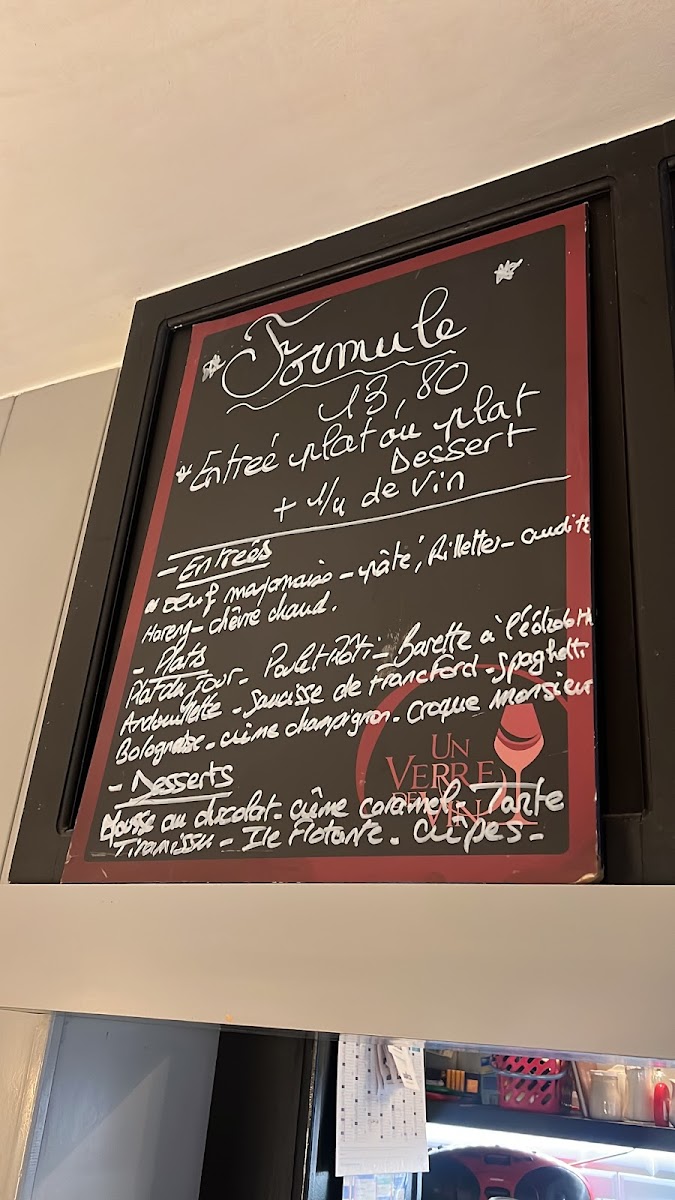 Formule
13,80
Entreé plat ou plat
Dessert
+ 1/4 de vin
- Entreés
Oeuf mayonaise - pâté, Rillettes - crudité
Hareng - chêvre chaud.
- Plats
Plat du jour - Poulet Rôti - Bavette à l'échalotte
Andouillette - Saucisse de Francford - Spaghetti
Bolognaise - crème champignon - Croque Monsieur
- Desserts
Mousse au chocolat - crème caramel - Tarte
Tiramissu - Ile Flotante - Crêpes -
UN
VERRE
DE
VIN